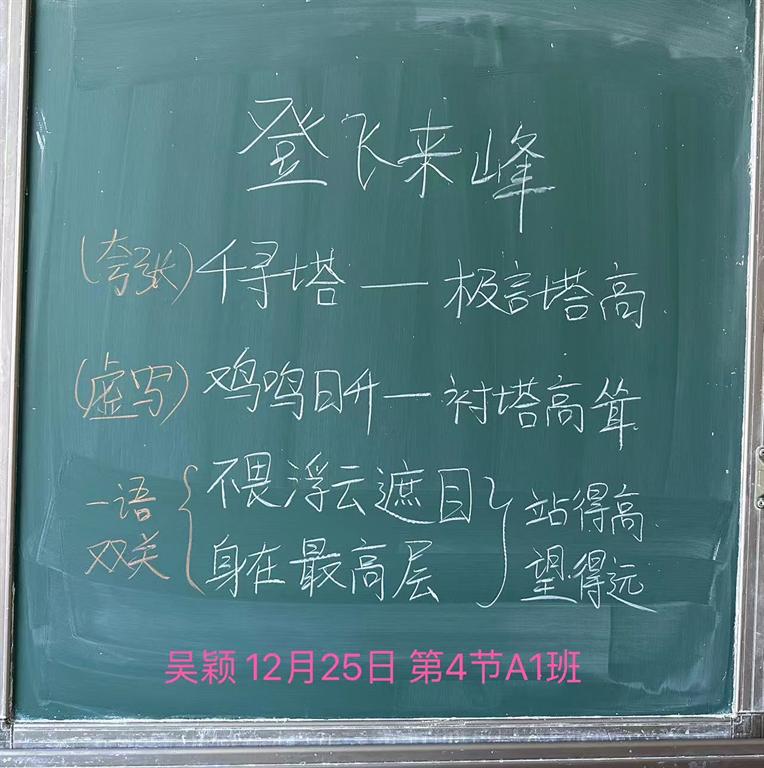 登飞来峰
(夸张)千寻塔—极言塔高.
(虚写)鸡鸣日升—衬塔高耸.
一语双关{不畏浮云遮目}站得高.
身在最高层 望得远
吴颖 12月25日 第4节A1班